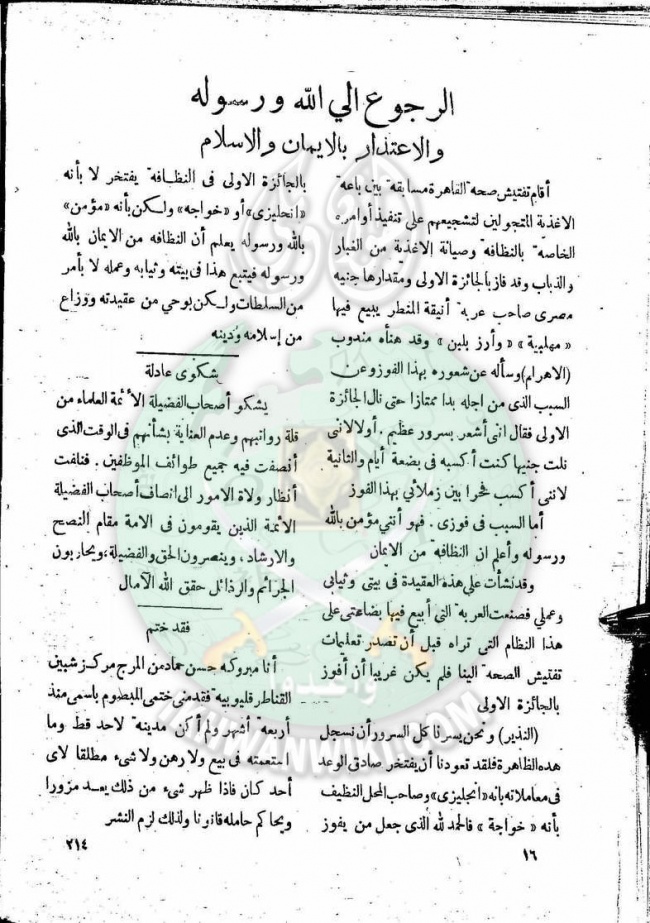 الرجوع الي الله ورسوله
والاعتذار بالايمان والاسلام
أقام تفتيش صحه القاهرة مسابقة بين باعة
الاغذية المتجولين لتشجيعهم على تنفيذ أوامره
الخاصه بالنظافه وصيانة الاغذية من الغبار
والذباب وقد فاز بالجائزة الاولى ومقدارها جنيه
مصرى صاحب عربه أنيقة المنطر يبيع فيها
« مهلبية » « وأرز بلبن » وقد هنأه مندوب
(الاهرام) وسأله عن شعوره بهذا الفوز وعن
السبب الذى من اجله بدا ممتازا حتى نال الجائزة
الاولى فقال انى أشعر بسرور عظيم . أولا لانى
نلت جنيها كنت أكسبه فى بضعة أيام والثانية
لاننى أكسب فخرا بين زملائي بهذا الفوز
أما السبب فى فوزى . فهو أننى مؤمن بالله
ورسوله وأعلم ان النظافه من الايمان
وقد نشأت على هذه العقيدة فى بيتى وثيابى
وعملي فصنعت العربه التى أبيع فيها بضاعتى على
هذا النظام التي تراه قبل أن تصدر تعليمات
تفتيش الصحه الينا فلم يكن غريبا أن أفوز
بالجائزة الاولى
(النذير) ونحن يسرنا كل السرور أن نسجل
هده الظاهرة فلقد تعودنا أن يفتخر صادق الوعد
فى معاملاته بانه « انجليزى » وصاحب المحل النظيف
بأنه « خواجة » فالحمد لله الذى جعل من يفوز
بالجائزة الاولى فى النظافه يفتخر لا بأنه
«انجليزى» أو « خواجه » ولكن بأنه « مؤمن »
بالله ورسوله يعلم أن النظافه من الايمان بالله
ورسوله فيتبع هذا فى بيته وثيابه وعمله لا بأمر
من السلطات ولكن بوحي من عقيدته ووزاع
من إسلامه ودينه
شكوى عادلة
يشكو أصحاب الفضيلة الأئمة العلماء من
قلة رواتبهم وعدم العناية بشأنهم فى الوقت الذى
أنصفت فيه جميع طوائف الموظفين . فنلفت
أنظار ولاة الامور الى انصاف أصحاب الفضيلة
الأئمة الذين يقومون فى الامة مقام النصح
والارشاد ، وينصرون الحق والفضيلة ، ويحاربون
الجرائم والرذائل حقق الله الآمال
فقد ختم
أنا مبروكه حسن حماد من المرج مركز شبين
القناطر قليوبيه فقد منى ختمى المبطوم باسمى منذ
أربعه أشهر ولم أكن مدينه لاحد قط وما
استعمته فى بيع ولا رهن ولا شىء مطلقا لاى
أحد كان فاذا ظهر شىء من ذلك يعد مزورا
ويحاكم حامله قانونا ولذلك لزم النشر
١٦
٢١٤
واعدوا
IKHWANWIKI.COM